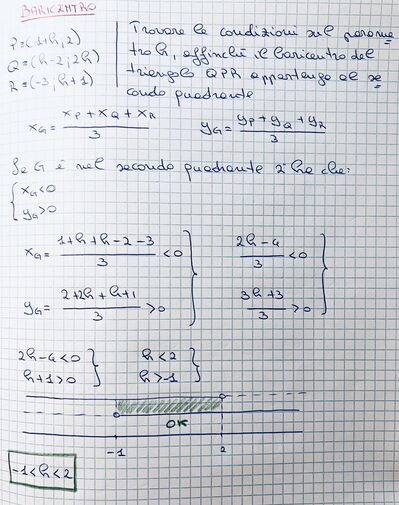 BARICENTRO
P=(1+h,2)
Q=(h-2;2h)
R=(-3,h+1)
Trovare le condizioni sul parame
tro h, affinché il baricentro del
triangolo QPR appartenga al se
condo quadrante
x_G = (x_P+x_Q+x_R)/3    y_G = (y_P+y_Q+y_R)/3
Se G è nel secondo quadrante si ha che:
{x_G<0
{y_G>0
x_G = (1+h+h-2-3)/3 <0 }    (2h-4)/3 <0 }
y_G = (2+2h+h+1)/3 >0 }    (3h+3)/3 >0 }
2h-4<0 }    h<2 }
h+1>0 }    h>-1 }
OK
-1    2
-1<h<2